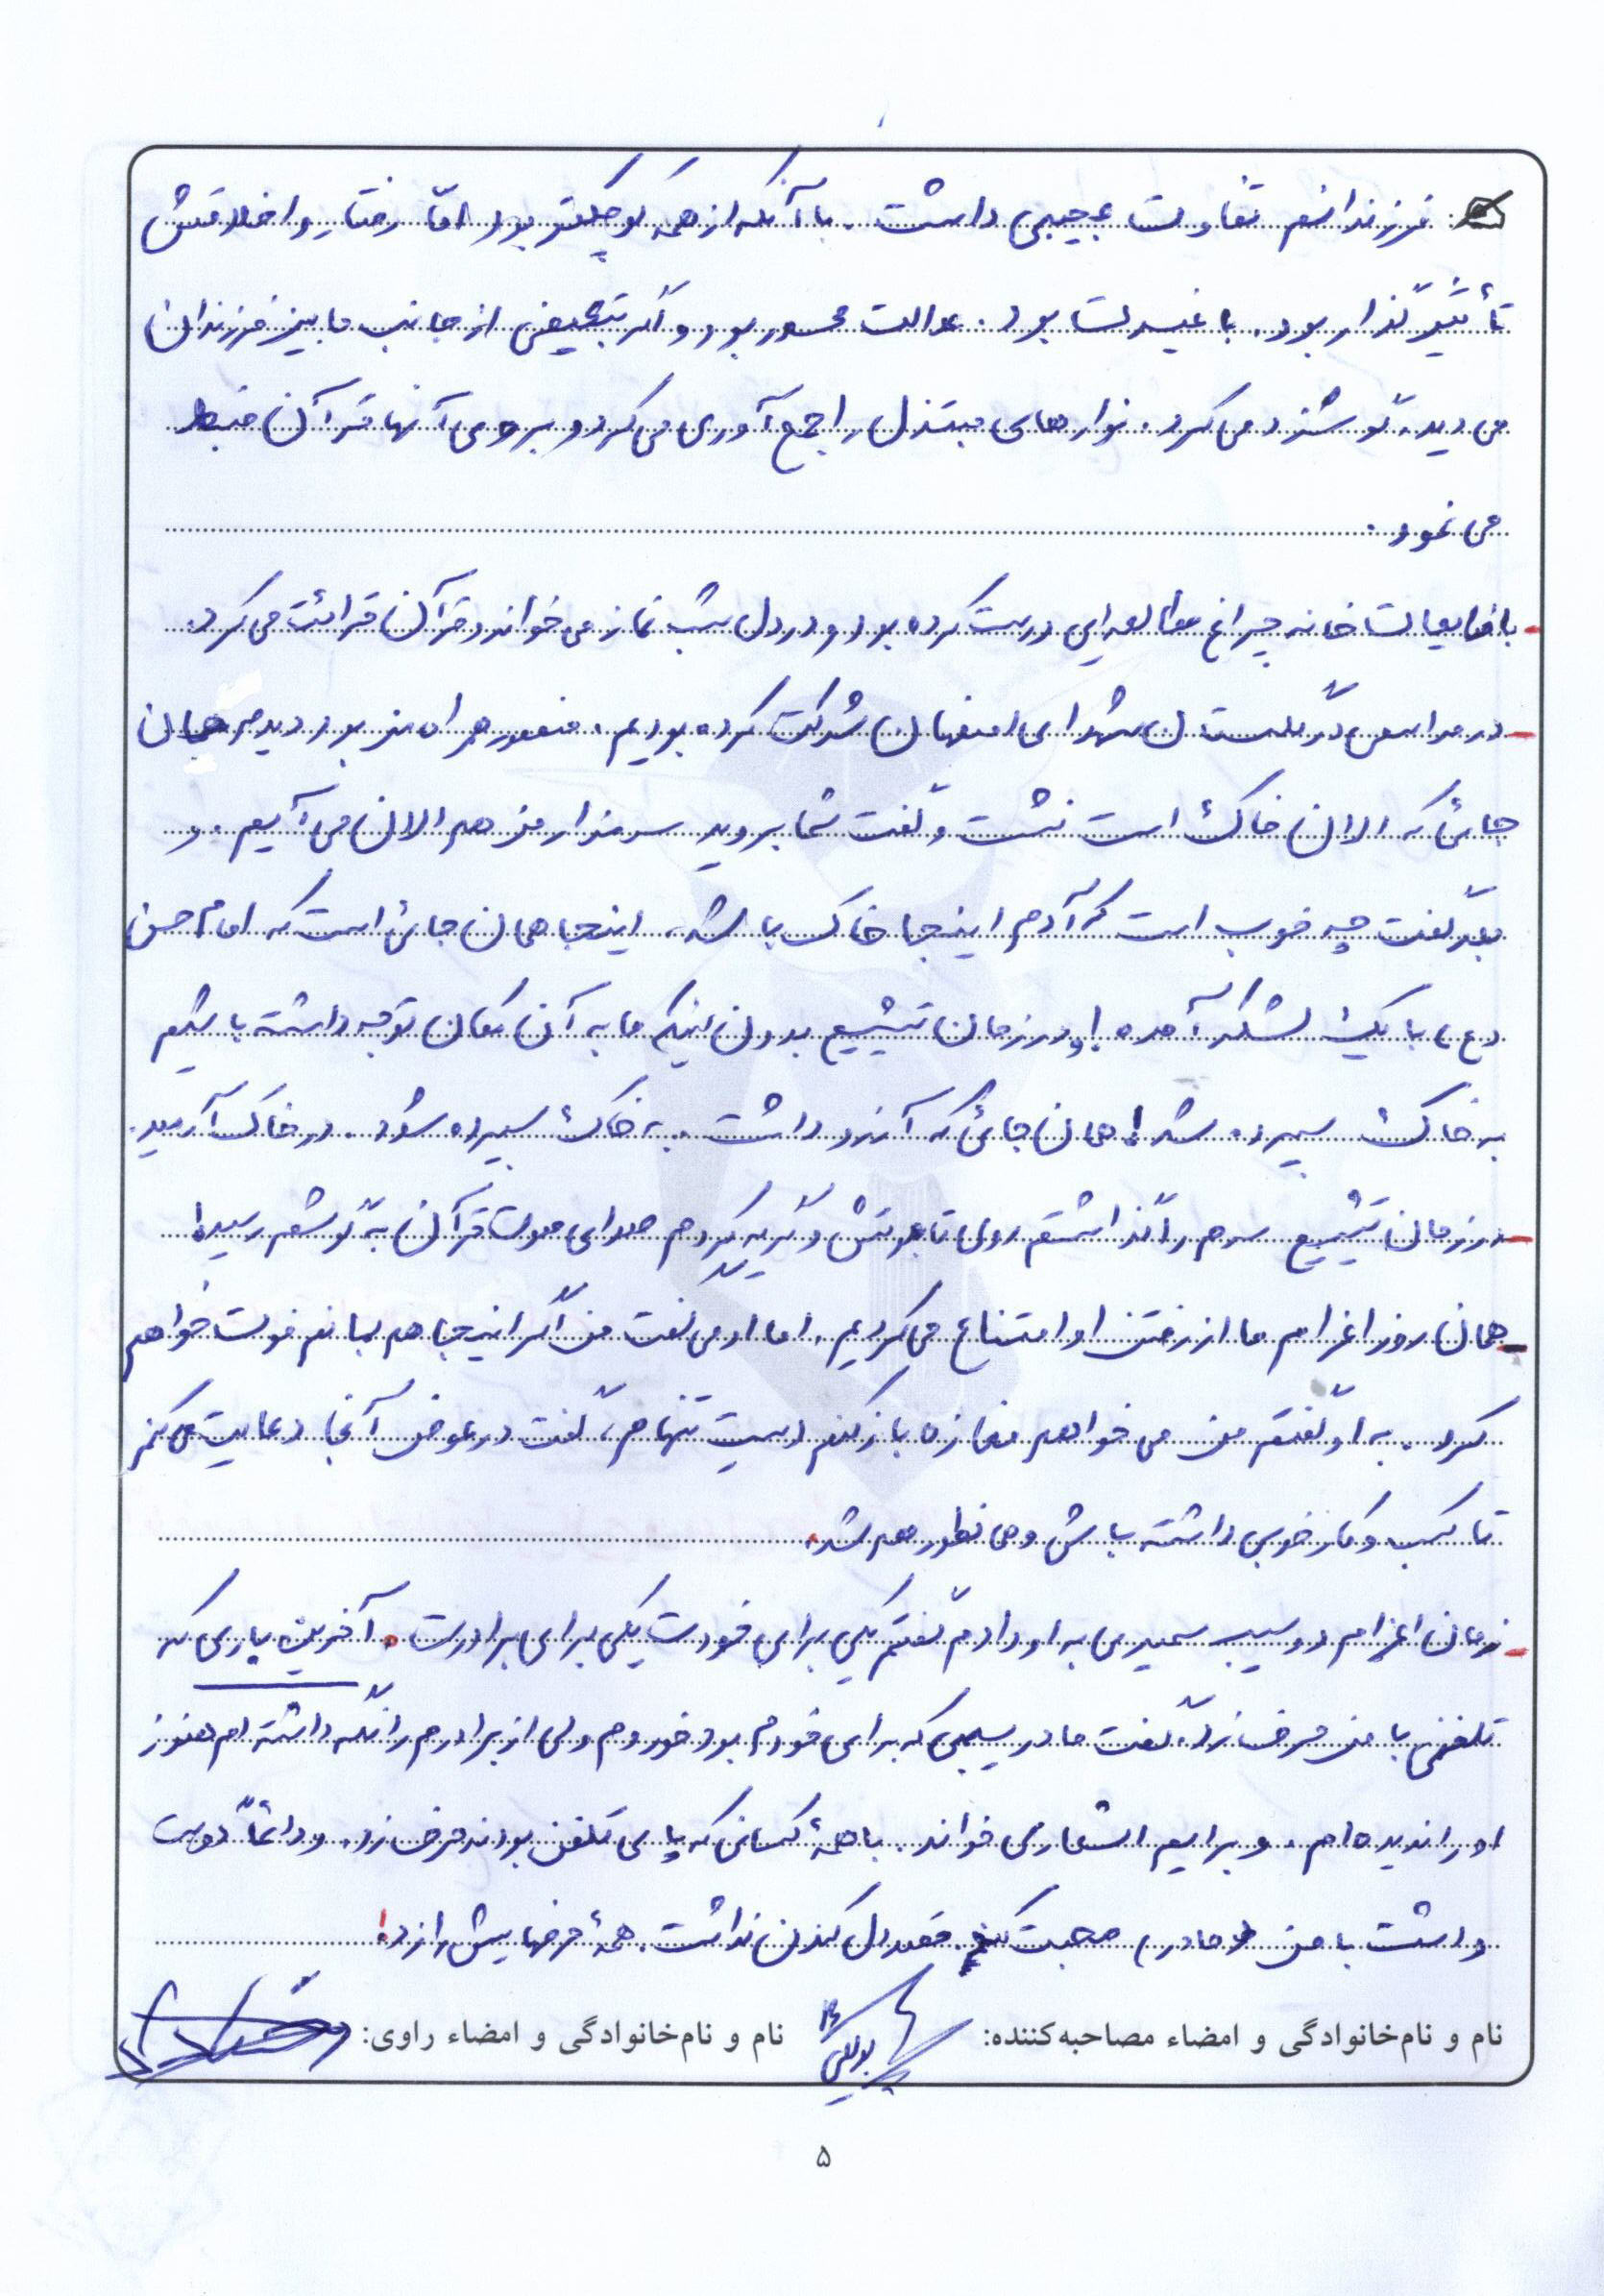 فرزندانم تفاوت عجیبی داشت. با آنکه از همه کوچکتر بود امّا رفتار و اخلاقش
تأثیرگذار بود. با غیرت بود. عدالت محور بود و اگر تبعیضی از جانب ما بین فرزندان
می دید، گوشزد می کرد. نوارهای مبتذل را جمع آوری می کرد و بر روی آنها قرآن ضبط
می نمود.
- با ضایعات خانه چراغ مطالعه ای درست کرده بود و در دل شب نماز می خواند و قرآن قرائت می کرد.
- در مراسمی در گلستان شهدای اصفهان شرکت کرده بودیم. منصور همراه من بود دیدم همان
جائی که الان خاک است نشست و گفت شما بروید سر مزار من هم الان می آیم. و
بعد گفت چه خوب است که آدم اینجا خاک باشد، اینجا همان جائی است که امام حسن
(ع) با یک لشکر آمده! و در زمان تشییع بدون اینکه ما به آن مکان توجه داشته باشیم
به خاک سپرده شد! همان جائی که آرزو داشت به خاک سپرده شود. در خاک آرمید.
- در زمان تشییع سرم را گذاشتم روی تابوتش و گریه کردم صدای صوت قرآن به گوشم رسید!
- همان روز اعزام ما از رفتن او امتناع می کردیم. اما او می گفت من اگر اینجا هم بمانم فوت خواهم
کرد. به او گفتم من می خواهم مغازه باز کنم دست تنهام، گفت در عوض آنجا دعایت می کنم
تا کسب و کار خوبی داشته باش و همانطور هم شد.
- زمان اعزام دو سیب سمیری به او دادم گفتم یکی برای خودت یکی برای برادرت. آخرین باری که
تلفنی با من حرف زد، گفت مادر سیبی که برای خودم بود خوردم ولی از برادرم را نگه داشته ام هنوز
او را ندیده ام. و برایم اشعاری خواند. با همهٔ کسانی که پای تلفن بودند حرف زد. و دائماً دوست
داشت با من (مادر) صحبت کند. قصد دل کندن نداشت. همهٔ حرفهایش را زد!
نام و نام‌خانوادگی و امضاء مصاحبه‌کننده: نام و نام‌خانوادگی و امضاء راوی:
۵